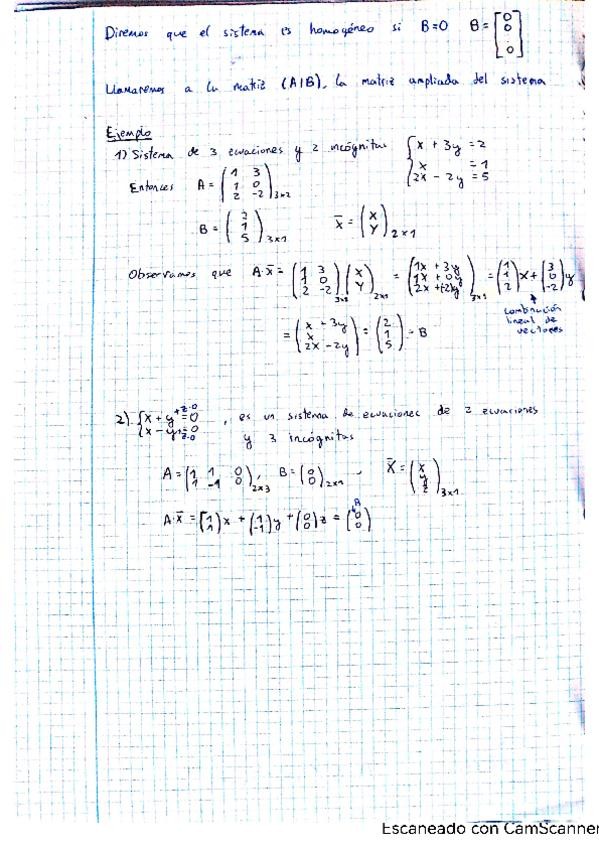 Diremos que el sistema es homogéneo si B=0 B=[0 0 . 0]
Llamaremos a la matriz (A|B), la matriz ampliada del sistema
Ejemplo
1) Sistema de 3 ecuaciones y 2 incógnitas { x + 3y = 2
x = 1
2x - 2y = 5
Entonces A = (1 3
1 0
2 -2)3x2
B = (2
1
5)3x1 x̄ = (x
y)2x1
Observamos que A·x̄ = (1 3
1 0
2 -2)3x2 (x
y)2x1 = (1x + 3y
1x + 0y
2x +(-2)y)3x1 = (1
1
2)x + (3
0
-2)y
combinación
lineal de
vectores
= (x + 3y
x
2x - 2y) = (2
1
5) = B
2) { x + y +z·0 = 0
x - y +z·0 = 0 , es un sistema de ecuaciones de 2 ecuaciones
y 3 incógnitas
A = (1 1 0
1 -1 0)2x3, B = (0
0)2x1, X̄ = (x
y
z)3x1
A·x̄ = (1
1)x + (1
-1)y + (0
0)z = (0
0)
Escaneado con CamScanner